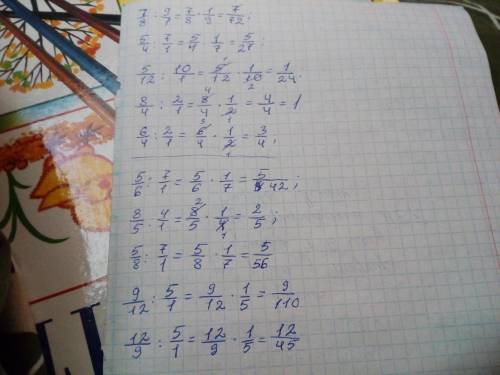 7/8 : 9/1 = 7/8 · 1/9 = 7/72;
5/4 : 7/1 = 5/4 · 1/7 = 5/28;
5/12 : 10/1 = 5/12 · 1/10 = 1/24. 1 2
8/4 : 2/1 = 8/4 · 1/2 = 4/4 = 1 4 1
6/4 : 2/1 = 6/4 · 1/2 = 3/4, 3 1
5/6 : 7/1 = 5/6 · 1/7 = 5/42;
8/5 : 4/1 = 8/5 · 1/4 = 2/5; 2 1
5/8 : 7/1 = 5/8 · 1/7 = 5/56
9/12 : 5/1 = 9/12 · 1/5 = 9/110
12/9 : 5/1 = 12/9 · 1/5 = 12/45